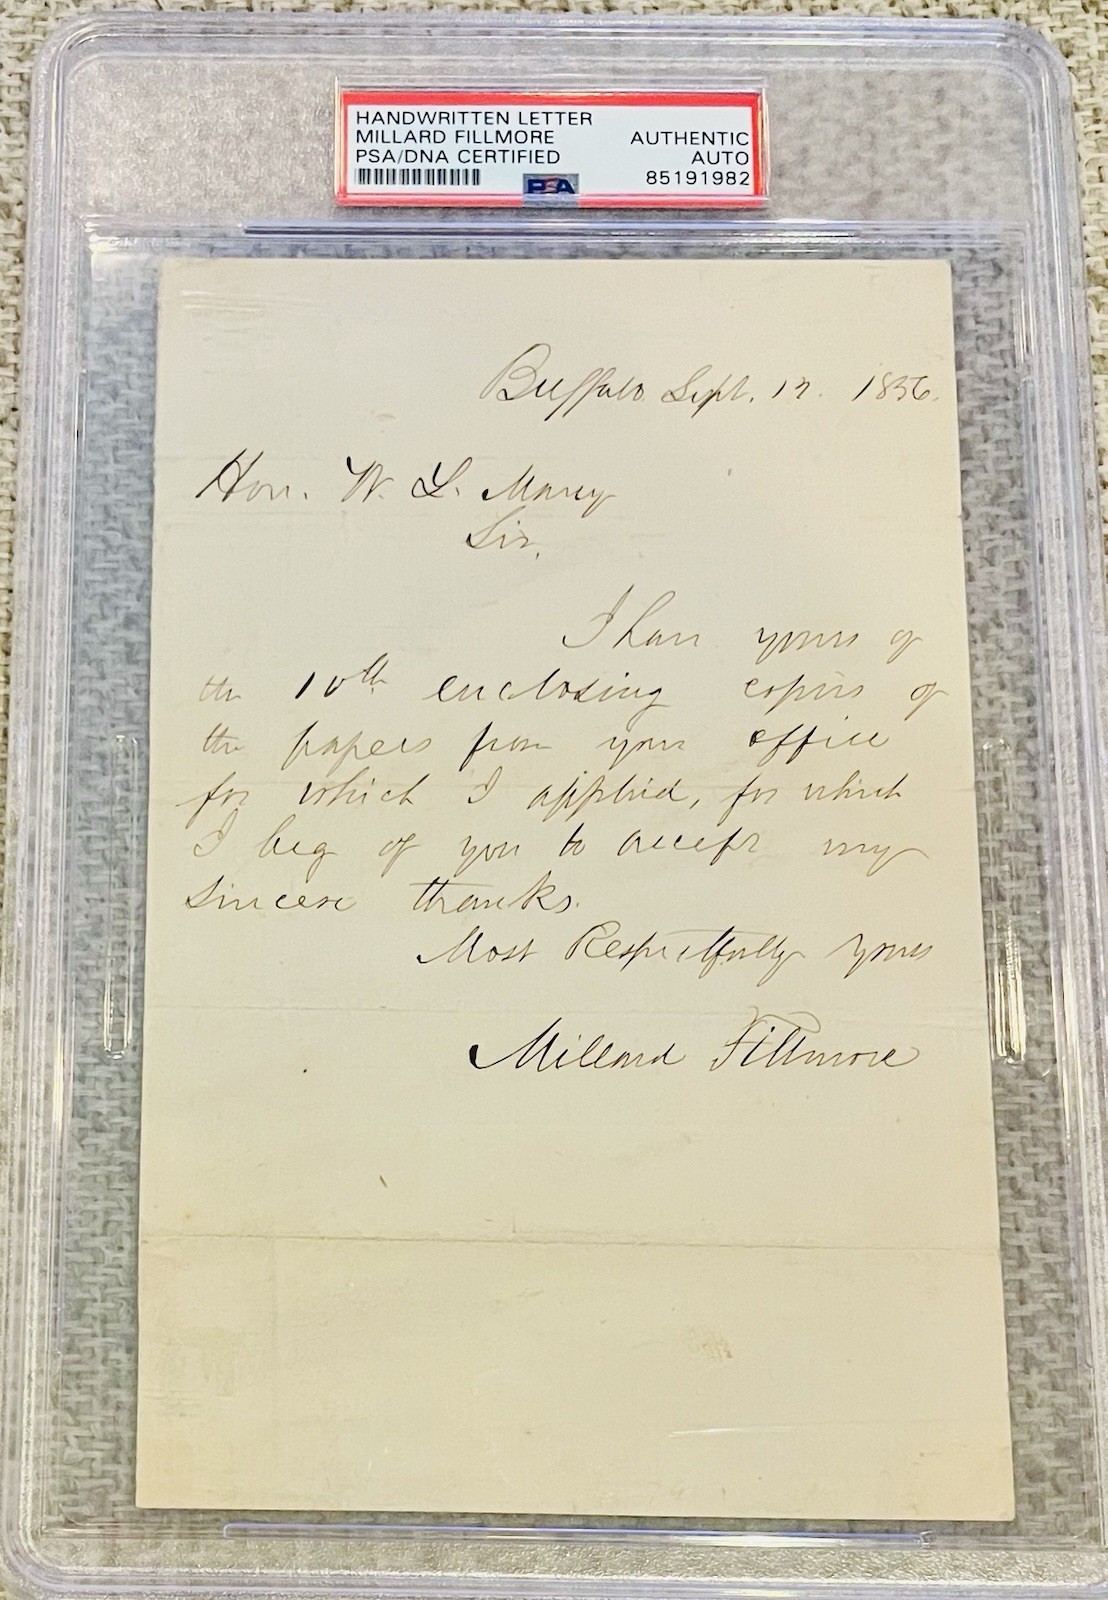 HANDWRITTEN LETTER
MILLARD FILLMORE
PSA/DNA CERTIFIED
AUTHENTIC
AUTO
85191982
PSA
Buffalo Sept. 12. 1856.
Hon. W. L. Marcy
Sir,
I have yours of
the 10th enclosing copies of
the papers from your office
for which I applied, for which
I beg of you to accept my
sincere thanks.
Most Respectfully yours
Millard Fillmore